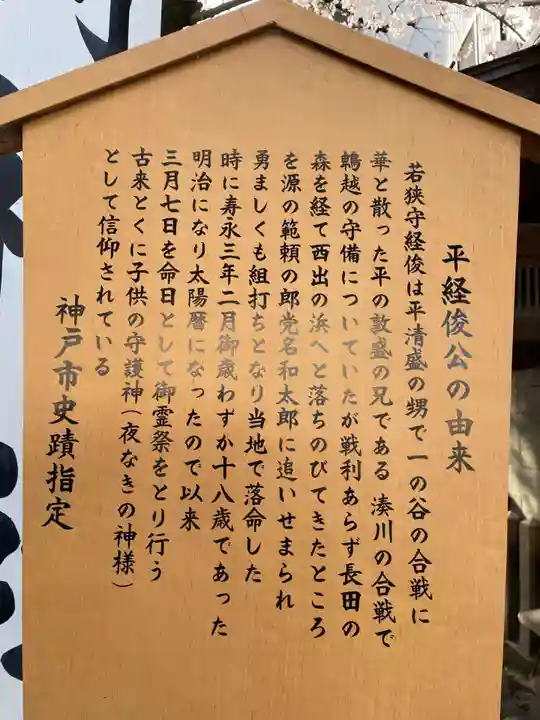 平経俊公の由来
若狭守経俊は平清盛の甥で一の谷の合戦に
華と散った平の敦盛の兄である 湊川の合戦で
鵯越の守備についていたが戦利あらず長田の
森を経て西出の浜へと落ちのびてきたところ
を源の範頼の郎党名和太郎に追いせまられ
勇ましくも組打ちとなり当地で落命した
時に寿永三年二月御歳わずか十八歳であった
明治になり太陽暦になったので以来
三月七日を命日として御霊祭をとり行う
古来とくに子供の守護神(夜なきの神様)
として信仰されている
神戸市史蹟指定